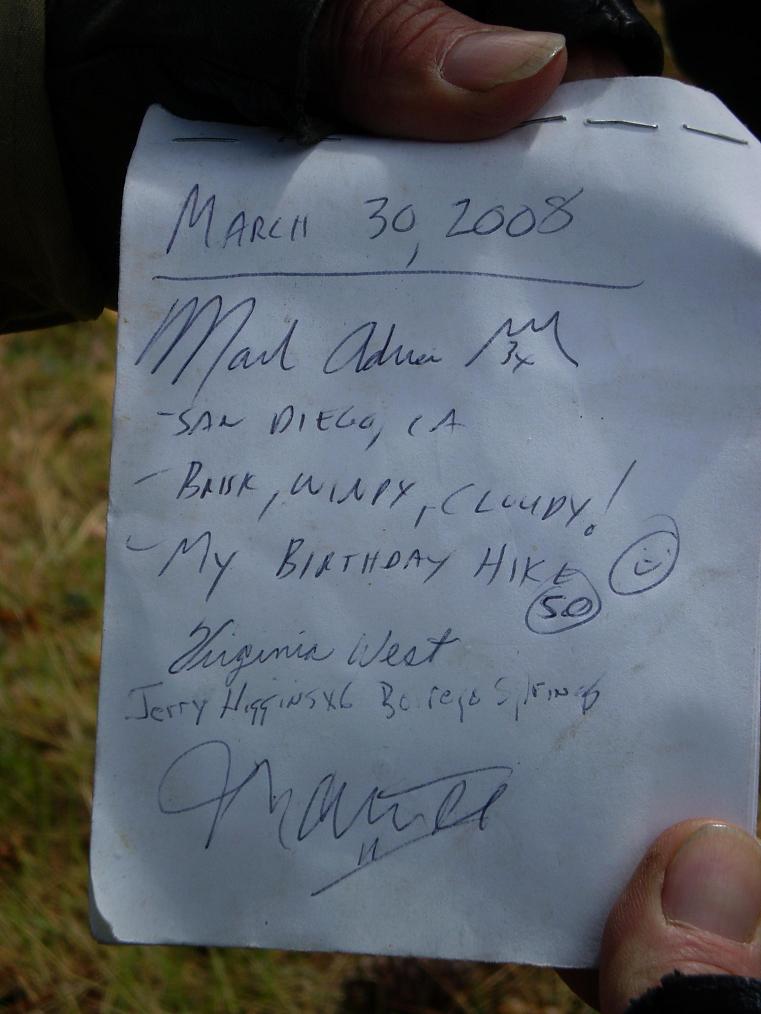 MARCH 30, 2008
Mark Adrian 3x
-SAN DIEGO, CA
- BRISK, WINDY, CLOUDY!
- MY BIRTHDAY HIKE
50
Virginia West
Jerry Higgins x6 Borrego Springs